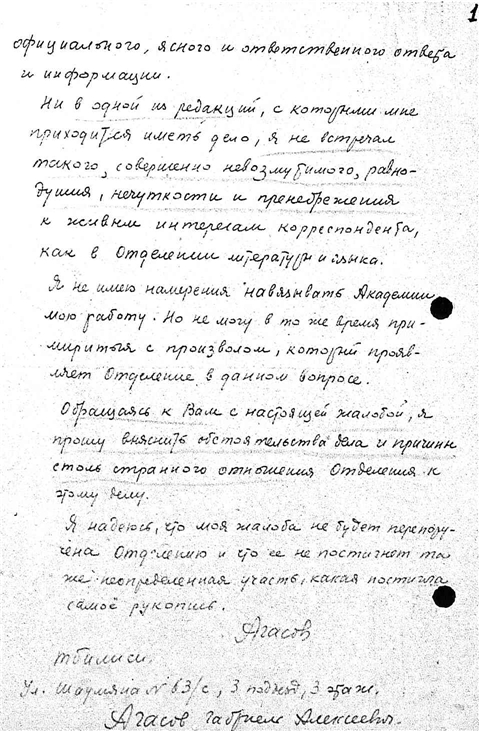 1
официального, ясного и ответственного ответа
и информации.
Ни в одной из редакций, с которыми мне
приходится иметь дело, я не встречал
такого, совершенно невозмутимого, равно-
душия, нечуткости и пренебрежения
к живым интересам корреспондента,
как в Отделении литературы и языка.
Я не имею намерения навязывать Академии
мою работу. Но не могу в то же время при-
мириться с произволом, который прояв-
ляет Отделение в данном вопросе.
Обращаясь к Вам с настоящей жалобой, я
прошу выяснить обстоятельства дела и причины
столь странного отношения Отделения к
этому делу.
Я надеюсь, что моя жалоба не будет перепору-
чена Отделению и что ее не постигнет та
же неопределенная участь, какая постигла
самоё рукопись.
Агасов
Тбилиси.
Ул. Шаумяна № 63/с, 3 подъезд, 3 этаж.
Агасов Габриель Алексеевич.